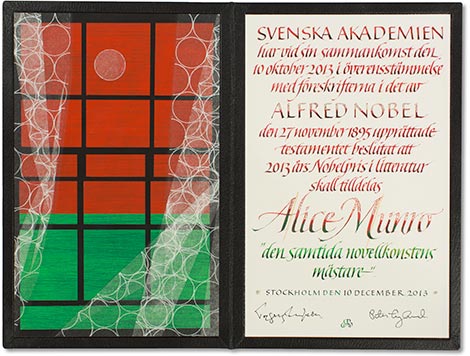 SVENSKA AKADEMIEN
har vid sin sammankomst den
10 oktober 2013 i överensstämmelse
med föreskrifterna i det av
ALFRED NOBEL
den 27 november 1895 upprättade
testamentet beslutat att
2013 års Nobelpris i litteratur
skall tilldelas
Alice Munro
"den samtida novellkonstens
mästare—"
STOCKHOLM DEN 10 DECEMBER 2013